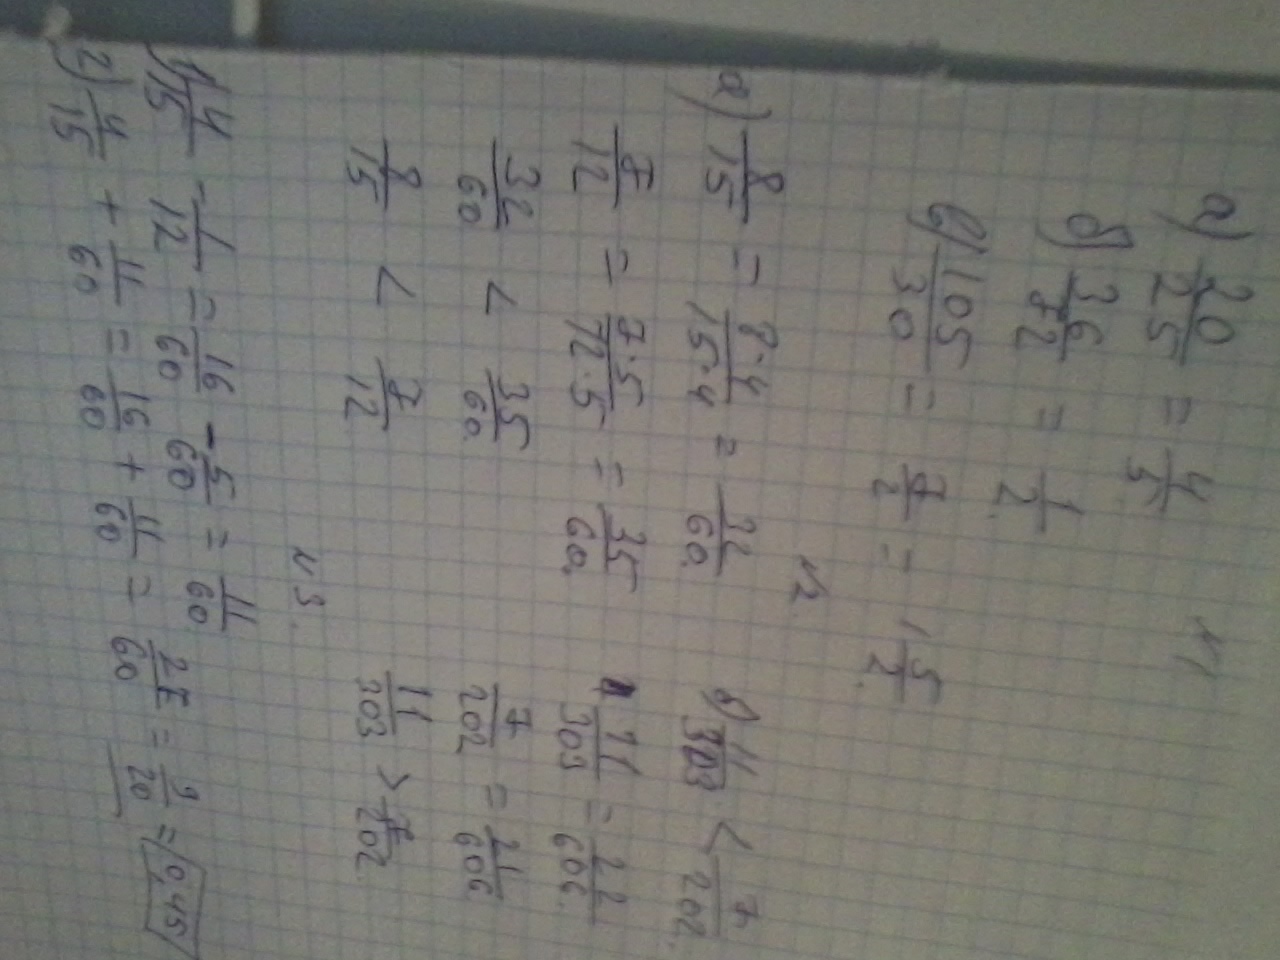 N1
а) 20/25 = 4/5
б) 36/72 = 1/2
в) 105/30 = 7/2 = 1 5/2
N2
а) 8/15 = 8·4/15·4 = 32/60
7/12 = 7·5/12·5 = 35/60
32/60 < 35/60
8/15 < 7/12
б) 11/303 < 7/202
11/303 = 22/606
7/202 = 21/606
11/203 > 7/202
N3
1) 4/15 - 1/12 = 16/60 - 5/60 = 11/60
2) 4/15 + 11/60 = 16/60 + 11/60 = 27/60 = 9/20 = 0,45